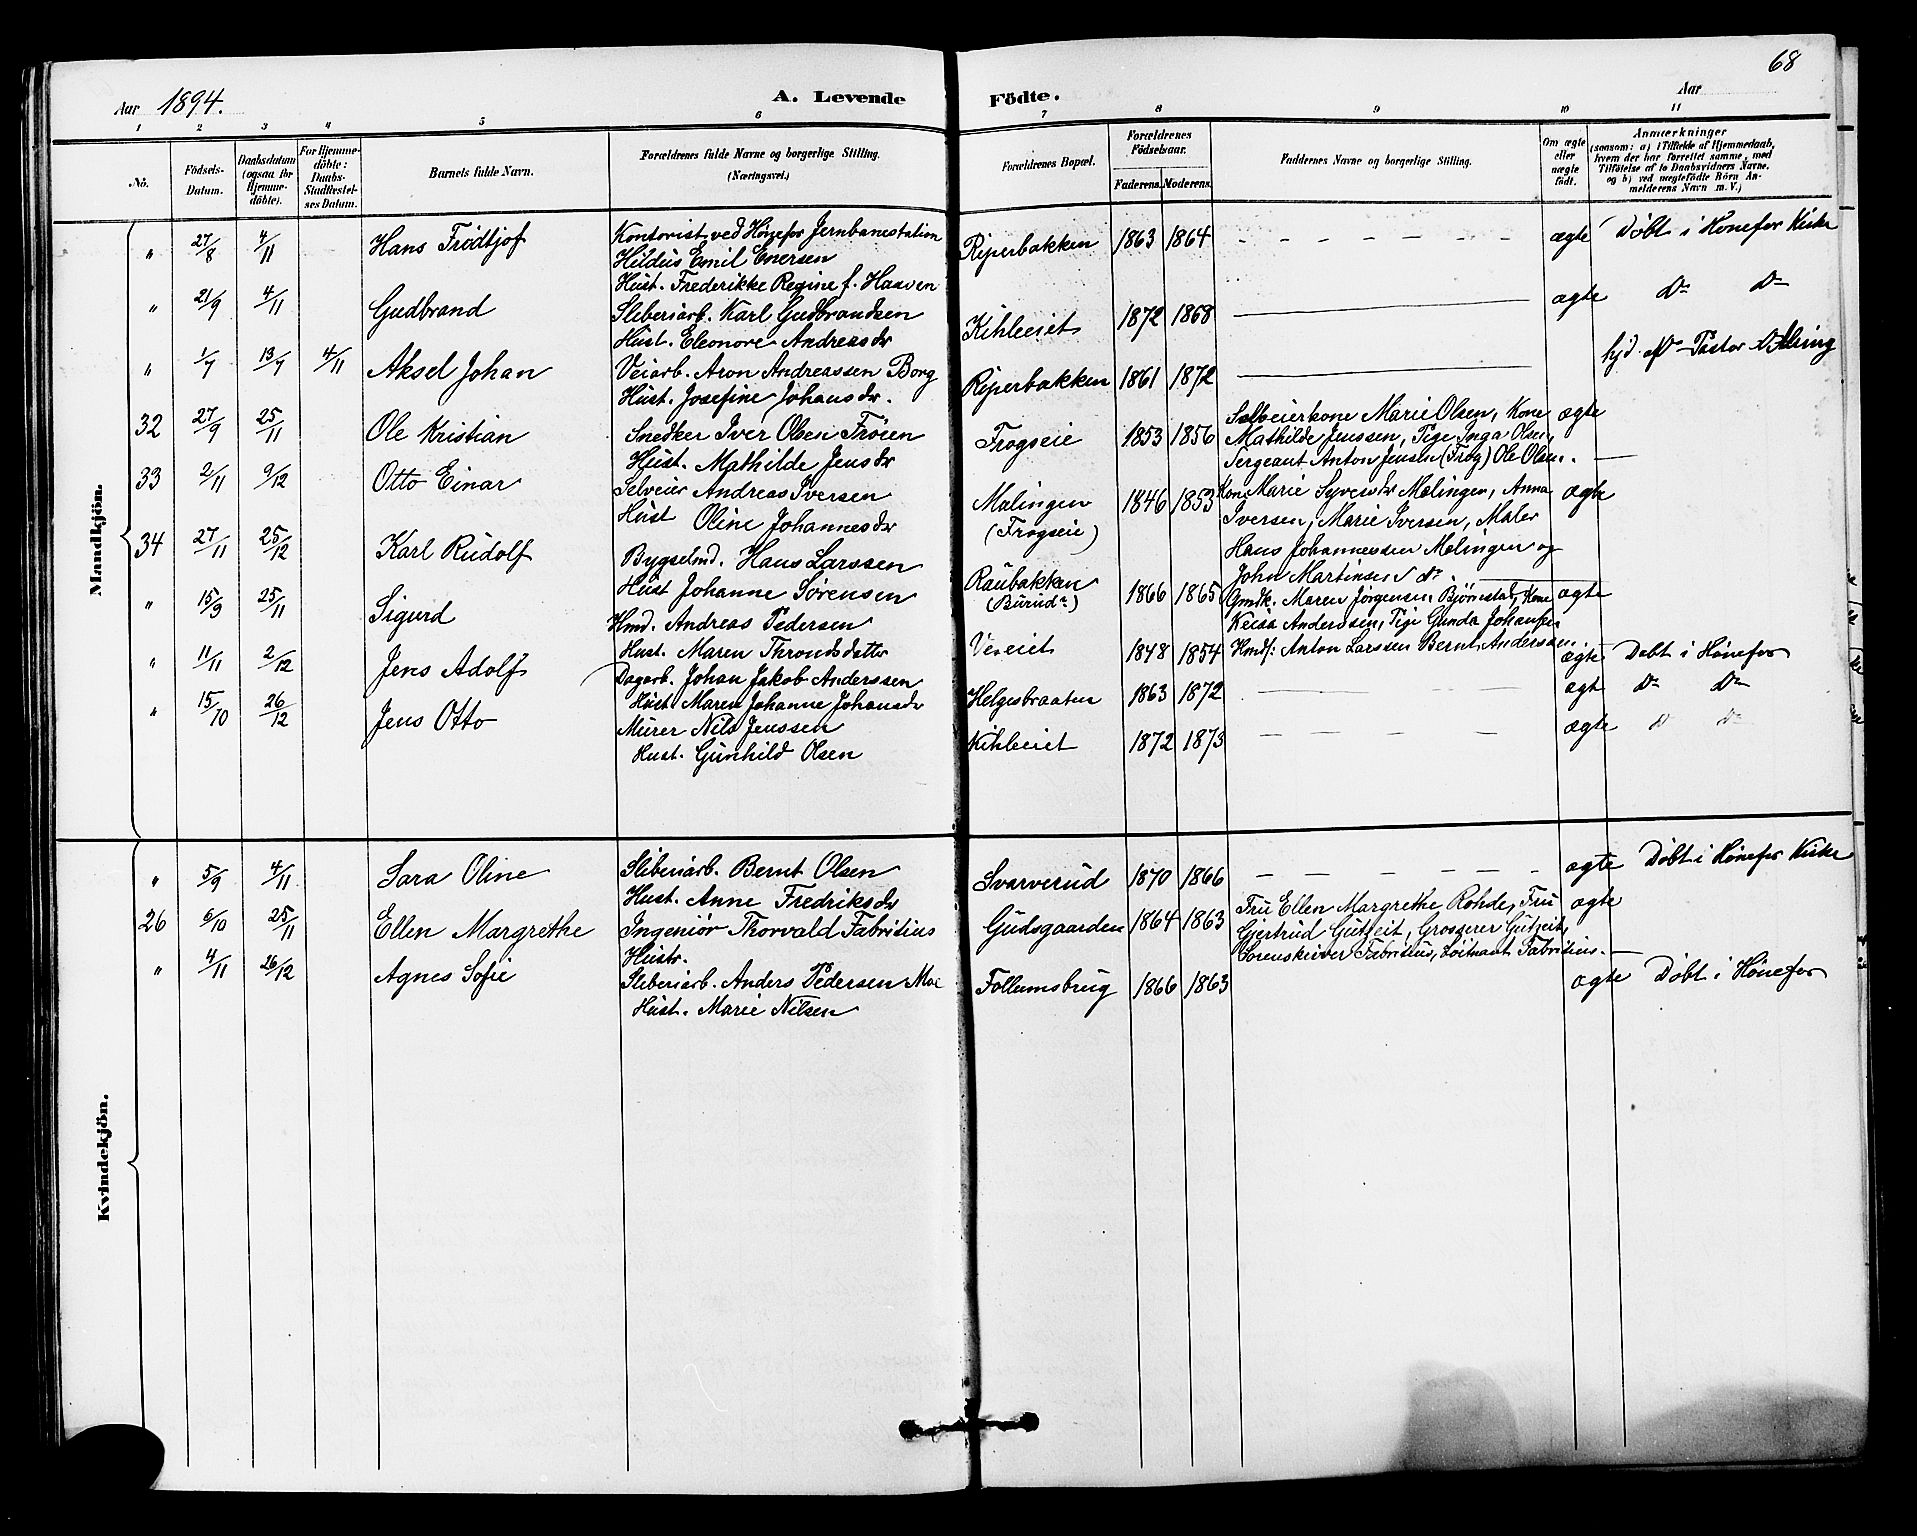 68
Aar 1894. A. Levende Födte. Aar
1 2 3 4 5 6 7 8 9 10 11
No. Födsels-Datum. Daabsdatum (ogsaa for Hjemme-döbte). For Hjemme-döbte: Daabs-Stadfæstel-ses Datum. Barnets fulde Navn. Forældrenes fulde Navne og borgerlige Stilling. (Næringsvei.) Forældrenes Bopæl. Forældrenes Födselsaar. Faderens. Moderens. Faddernes Navne og borgerlige Stilling. Om ægte eller uægte födt. Anmærkninger (saasom: a) i Tilfælde af Hjemmedaab, hvem der har forrettet samme, med Tilföielse af to Daabsvidners Navne, og b) ved uægtefödte Börn An-melderens Navn m. V.)
Mandkjön.
" 27/8 4/11 Hans Fridtjof Kontorist ved Hønefos Jernbanestation Riperbakken 1863 1864 - - - - - - - ægte Døbt i Hønefos Kirke
Hildus Emil Enersen
Hust. Frederikke Regine f. Haaven
" 21/9 4/11 Gudbrand Sliberiarb. Karl Gudbrandsen Kihleeiet 1872 1868 ægte Do Do
Hust. Eleonore Andreasdr
" 1/7 13/7 4/11 Aksel Johan Veiarb. Aron Andreassen Borg Riperbakken 1861 1872 hjd. af Pastor
Hust. Josefine Johansdr.
32 27/9 25/11 Ole Kristian Snedker Iver Olsen Frøien Frogseie 1853 1856 Selveierkone Marie Olsen, Kone ægte
Hust. Mathilde Jensdr Mathilde Jenssen, Pige Inga Olsen,
Sergeant Anton Jensen (Frog) Ole Olsen.
33 2/11 9/12 Otto Einar Selveier Andreas Iversen Malingen (Frogseie) 1846 1853 Kone Marie Syversdr Malingen, Anna ægte
Hust Oline Johannesdr Iversen, Marie Iversen, Maler
Hans Johannessen Malingen og
John Martinsen do
34 27/11 25/12 Karl Rudolf Bygselmd. Hans Larssen Raubakken (Burud) 1866 1865 Gmdk. Maren Jørgensen, Bjørnstad, Kone ægte
Hust Johanne Sørensen Anderssen, Pige Gunda Johansen
Hmdf: Anton Larssen Bernt Anderssen
" 15/9 25/11 Sigurd Hmd. Andreas Pedersen Veieiet 1848 1854 ægte Døbt i Hønefos
Hust. Maren Throndsdatter
" 11/11 2/12 Jens Adolf Dagarb. Johan Jakob Anderssen Helgesbraaten 1863 1872 - - - - ægte Do Do
Hust Maren Johanne Johansdr
" 15/10 26/12 Jens Otto Murer Nils Jenssen Kihleeiet 1872 1873 - - - - - ægte do do
Hust. Gunhild Olsen
Kvindekjön.
" 5/9 4/11 Sara Oline Sliberiarb. Bernt Olsen Svarverud 1870 1866 - - - - - - - ægte Døbt i Hønefos Kirke
Hust. Anne Fredriksdr
26 6/10 25/11 Ellen Margrethe Ingeniør Thorvald Fabritius Gudsgaarden 1864 1863 Fru Ellen Margrethe Rohde, Fru ægte
Hustr. Gjertrud Gutzeit, Grosserer Gutzeit,
Sorenskriver Fabritius, Løitnant Fabritius.
" 4/11 26/12 Agnes Sofie Sliberiarb. Anders Pedersen Moe Follumsbrug 1866 1863 ægte Døbt i Hønefos
Hust. Marie Nilsen